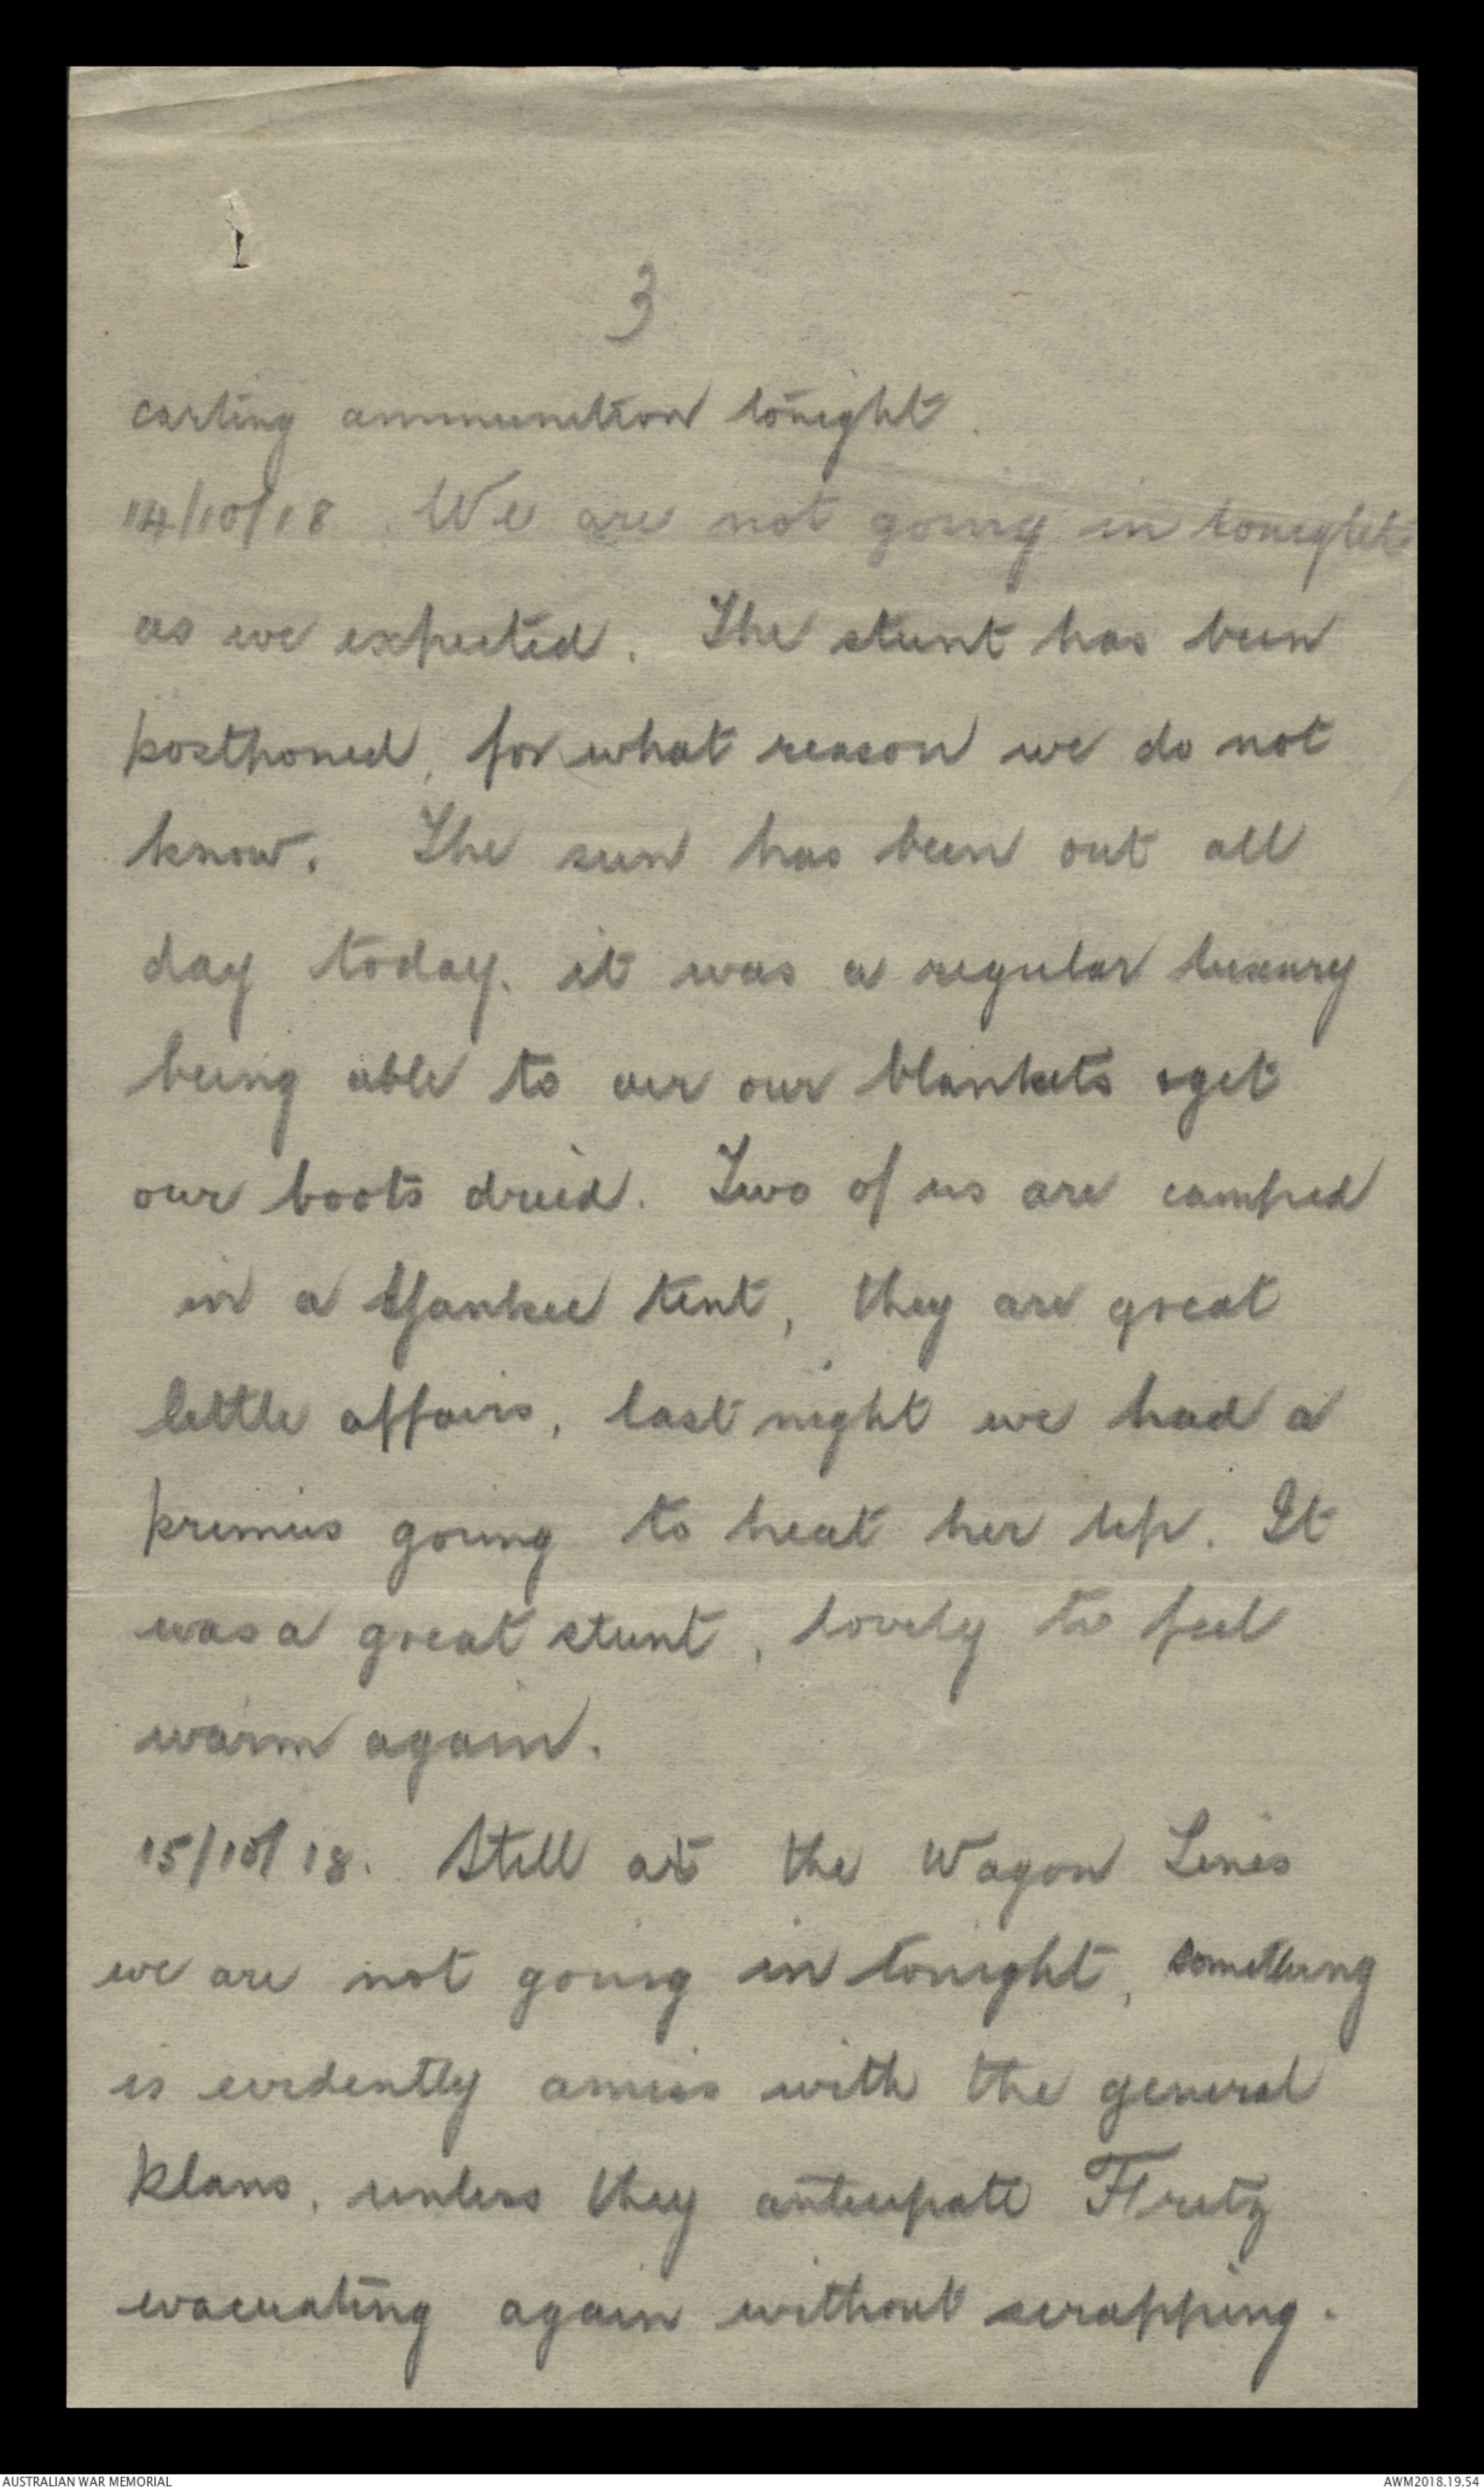 3
carting ammunition tonight.
14/10/18. We are not going in tonight
as we expected. The stunt has been
postponed, for what reason we do not
know. The sun has been out all
day today. it was a regular luxury
being able to air our blankets & get
our boots dried. Two of us are camped
in a Yankee tent, they are great
little affairs, last night we had a
primus going to heat her up. It
was a great stunt, lovely to feel
warm again.
15/10/18. Still at the Wagon Lines
we are not going in tonight, something
is evidently amiss with the general
plans, unless they anticipate Fritz
evacuating again without scrapping.
AUSTRALIAN WAR MEMORIAL
AWM2018.19.54